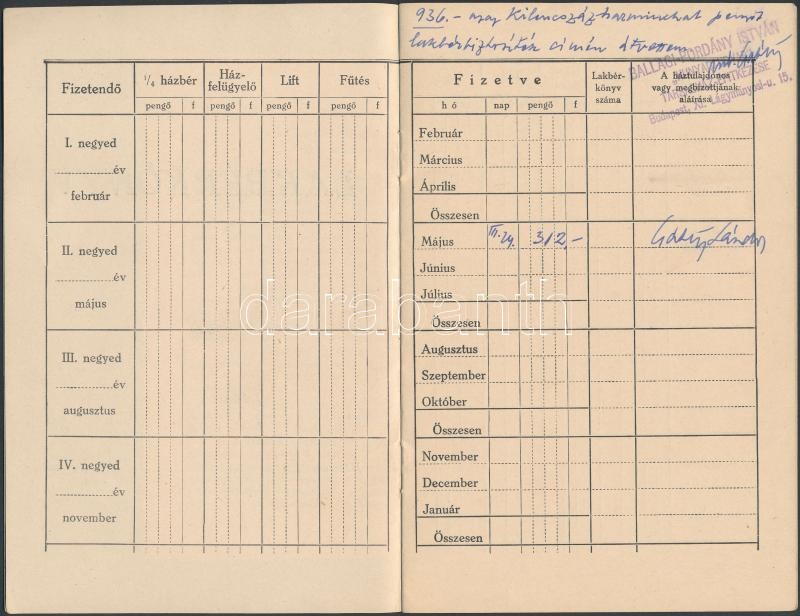 936.- azaz Kilencszázharminchat pengőt
lakbérbiztosíték címén átvettem
BALLAGI-BORDÁNY ISTVÁN
Budapest, XI. Lágymányosi-u. 15.
Fizetendő
¼ házbér
Ház-
felügyelő
Lift
Fűtés
pengő f pengő f pengő f pengő f
I. negyed
év
február
II. negyed
év
május
III. negyed
év
augusztus
IV. negyed
év
november
Fizetve
Lakbér-
könyv
száma
A háztulajdonos
vagy megbízottjának
aláírása
hó nap pengő f
Február
Március
Április
Összesen
Május III. 24. 312,-
Június
Július
Összesen
Augusztus
Szeptember
Október
Összesen
November
December
Január
Összesen
darabanth